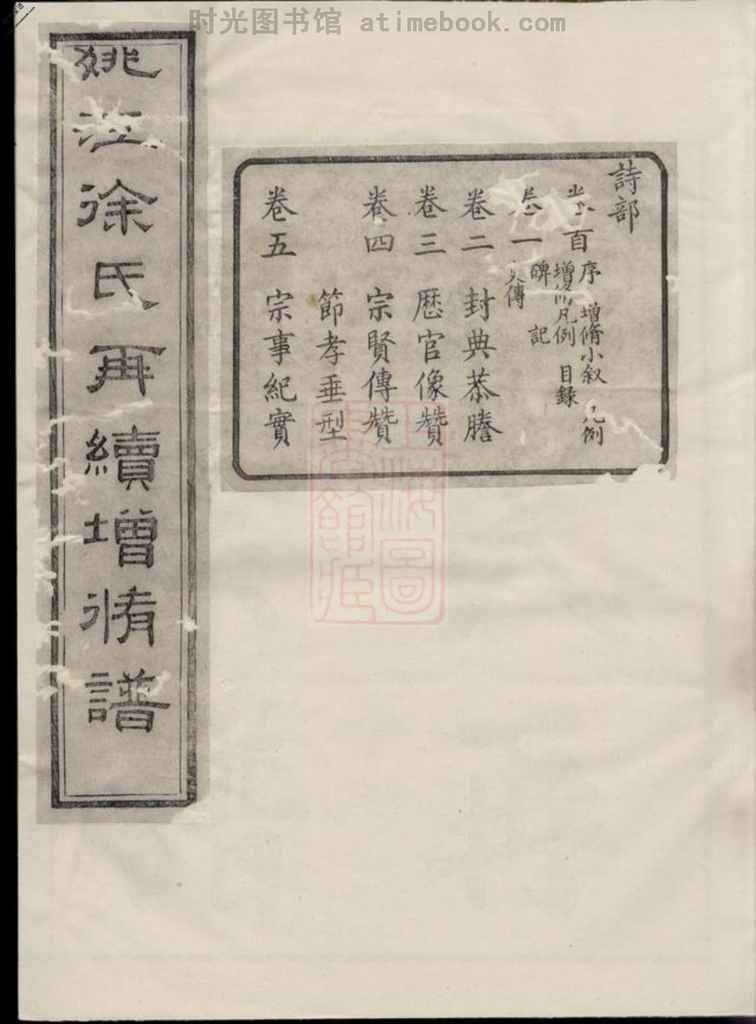 时光图书馆 atimebook.com
詩部
卷首 序 增脩小叙 凡例
增脩凡例 目錄
卷一 碑記
傳
卷二 封典恭謄
卷三 歷官像贊
卷四 宗賢傳贊
節孝垂型
卷五 宗事紀實
姚江徐氏再續增脩譜
上海圖書館藏